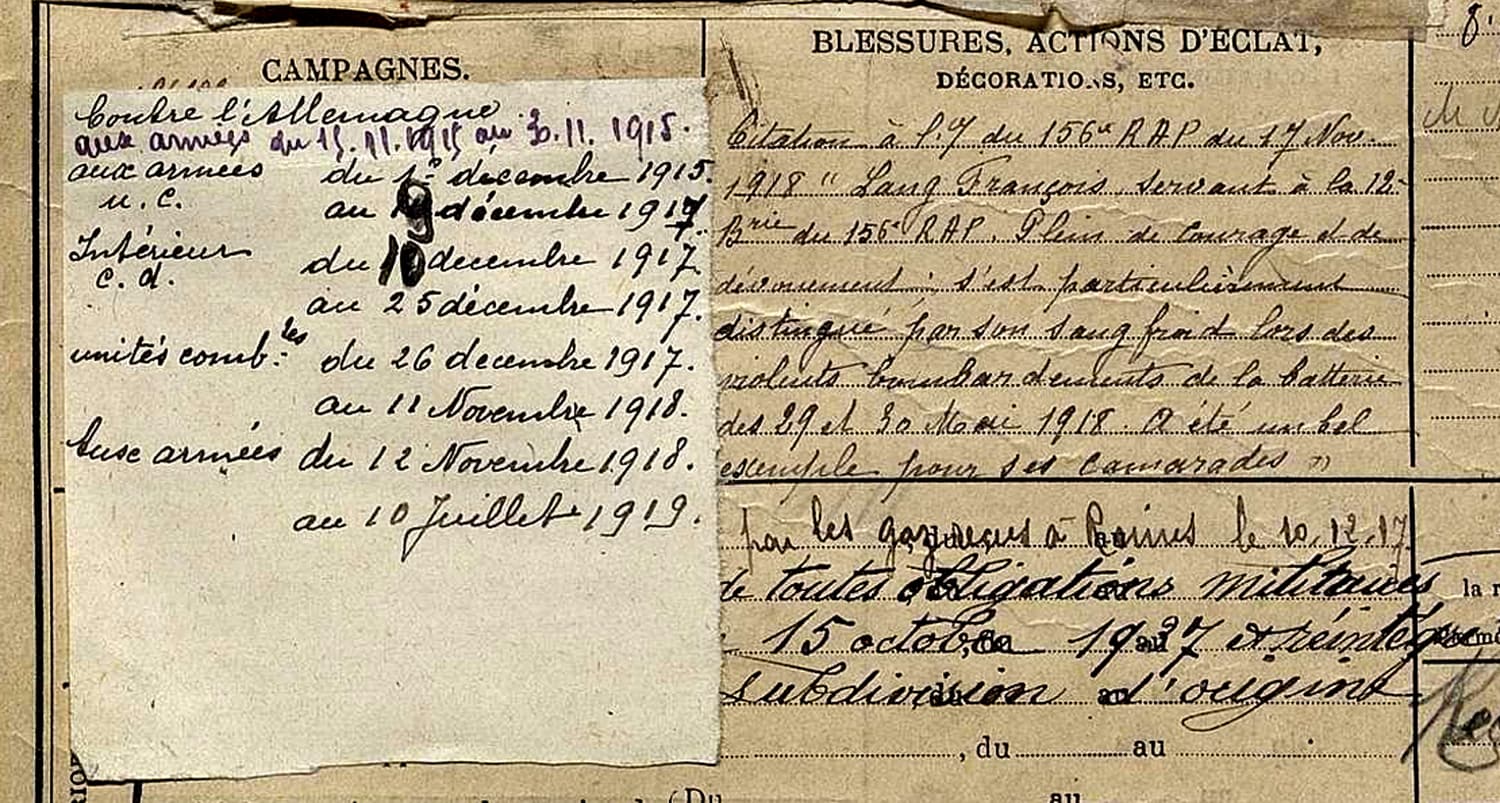 CAMPAGNES.
Contre l'Allemagne
aux armées du 15.11.1915 au 30.11.1915.
aux armées du 1er décembre 1915.
u. c. au 9 décembre 1917.
Intérieur du 10 decembre 1917.
c. d.
au 25 décembre 1917.
unités comb.les du 26 decembre 1917.
au 11 Novembre 1918.
Aux armées du 12 Novembre 1918.
au 10 Juillet 1919.
BLESSURES, ACTIONS D'ÉCLAT,
DÉCORATIONS, ETC.
Citation à l'. du 156e RAP du 17 Nov.
1918 " Lang François servant à la 12e
Brie du 156e RAP. Plein de courage et de
dévouement ; s'est particulièrement
distingué par son sang froid lors des
violents bombardements de la batterie
des 29 et 30 Mai 1918. A été un bel
exemple pour ses camarades "
par les gaz à Reims le 10.12.17
de toutes obligations militaires
15 octobre 1937 et réintègre
subdivision d'origine
, du au
au
la r